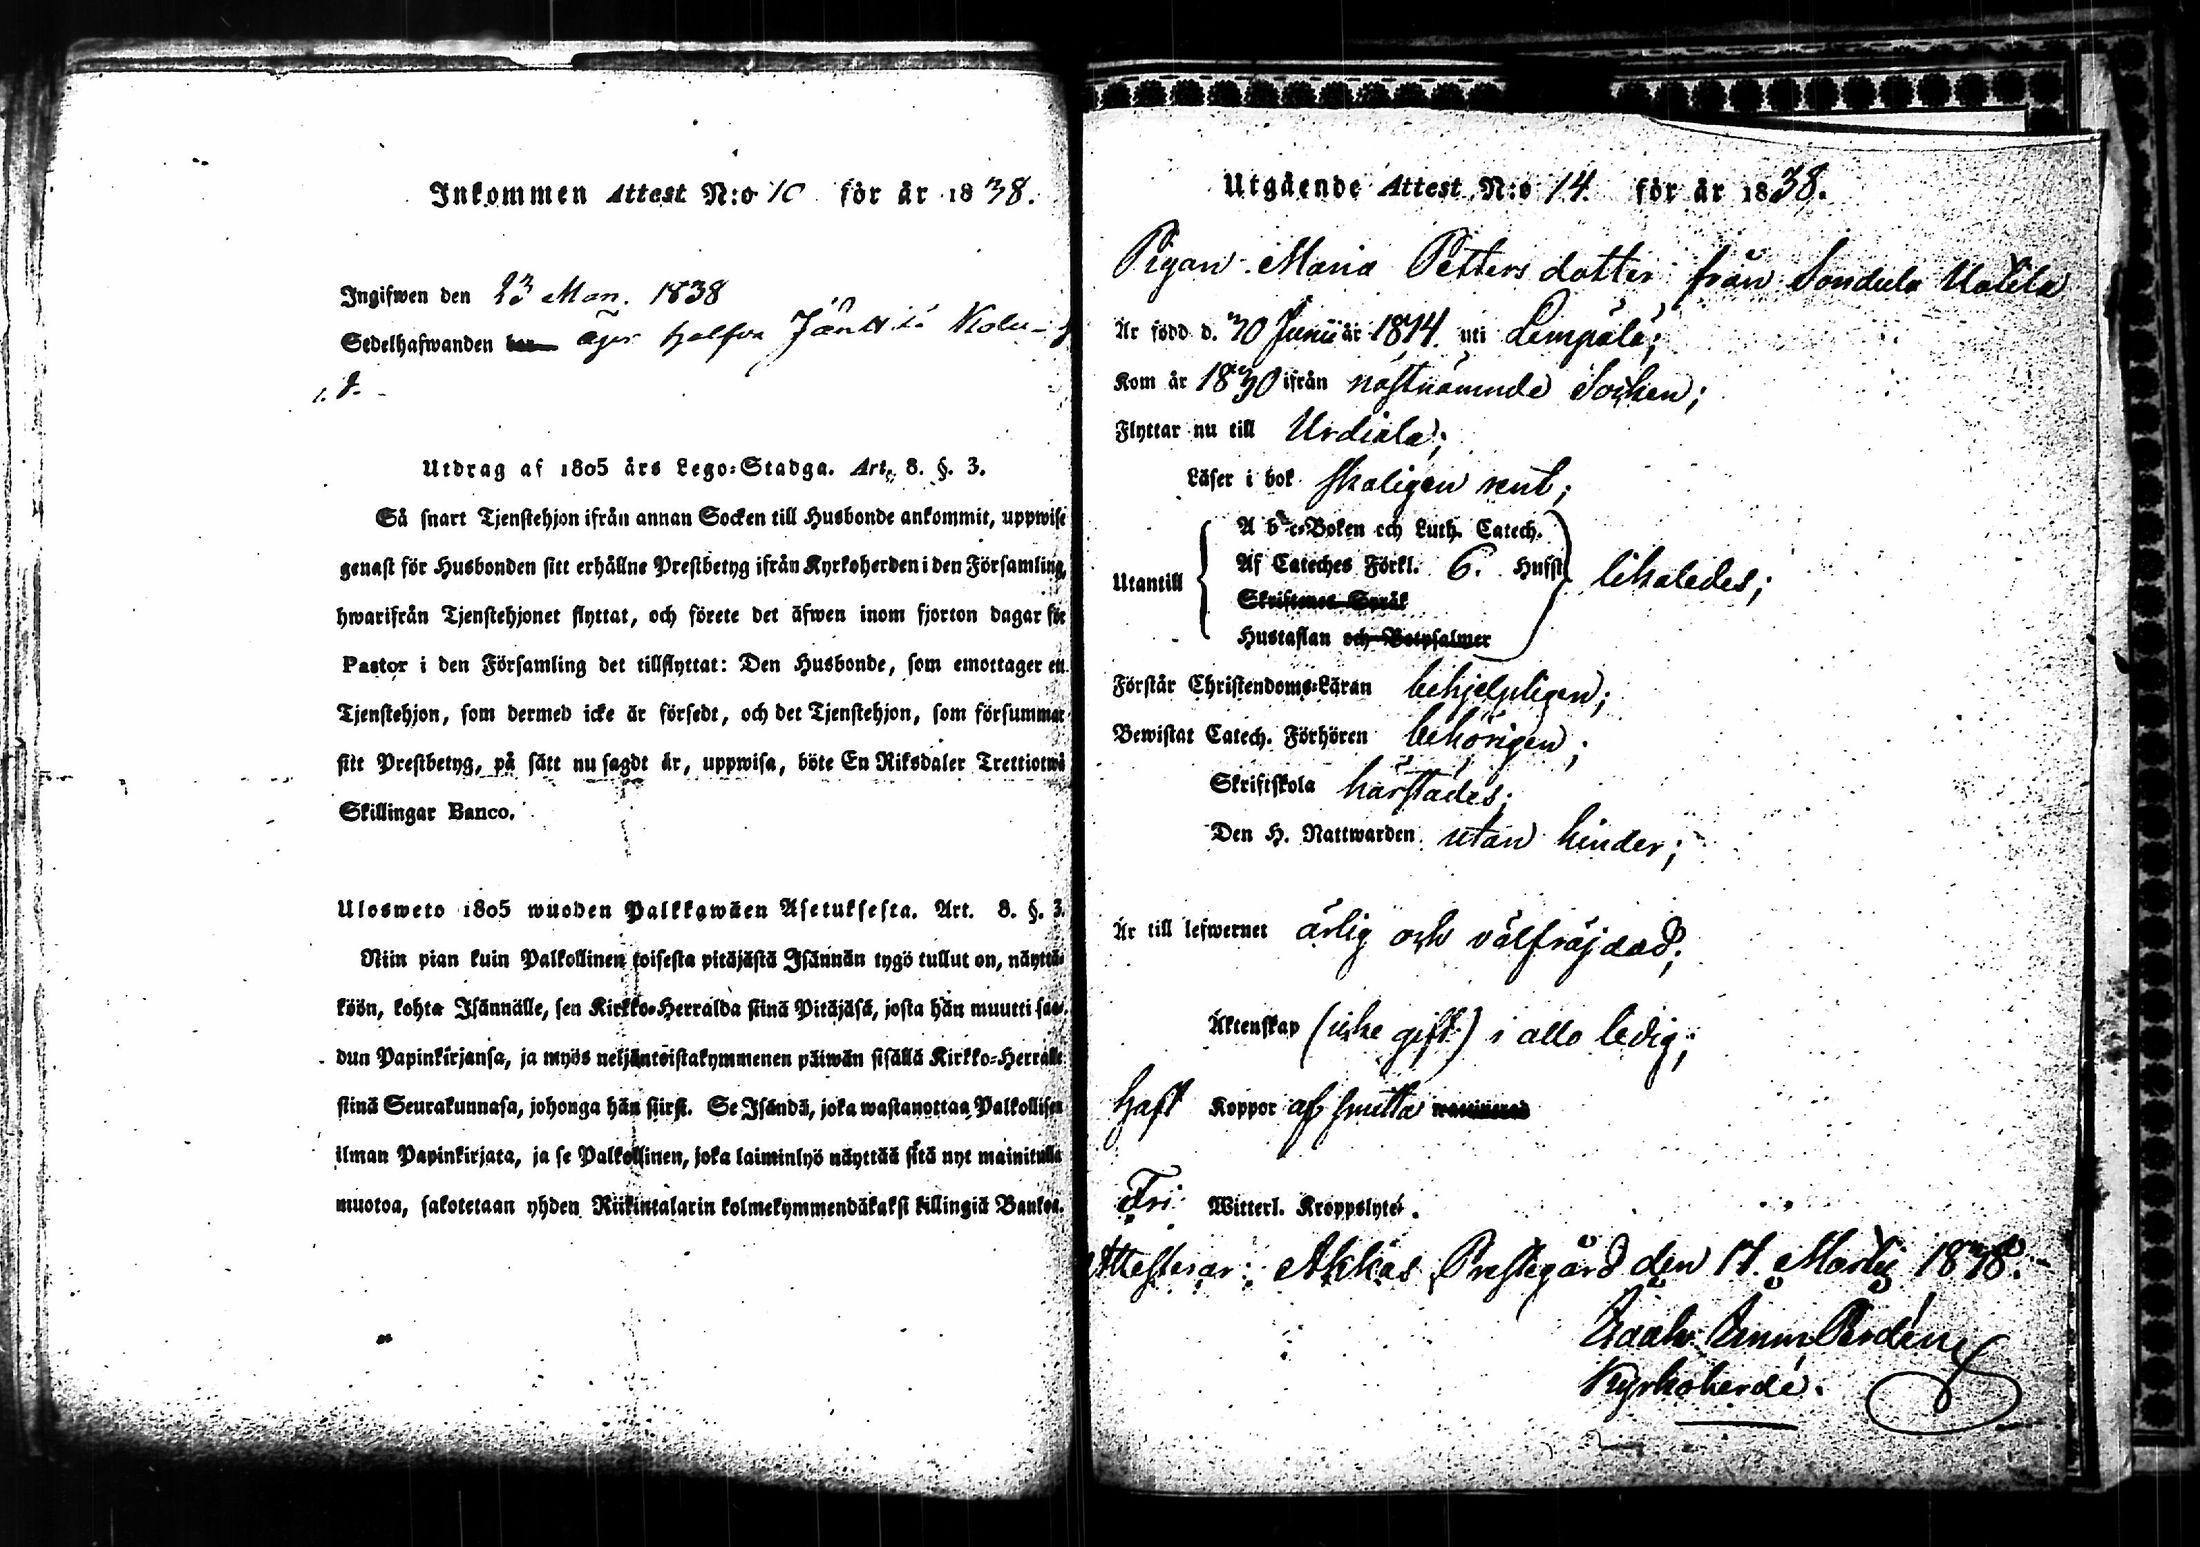 Inkommen Attest N:o 10 för år 1838.
Ingifwen den 23 Mar. 1838
Sedelhafwanden äger halfva
Utdrag af 1805 års Lego-Stadga. Art. 8. §. 3.
Så snart Tjenstehjon ifrån annan Socken till Husbonde ankommit, uppwise
genast för Husbonden sitt erhållne Prestbetyg ifrån Kyrkoherden i den Församling,
hwarifrån Tjenstehjonet flyttat, och förete det äfwen inom fjorton dagar för
Pastor i den Församling det tillflyttat: Den Husbonde, som emottager ett
Tjenstehjon, som dermed icke är försedt, och det Tjenstehjon, som försummar
sitt Prestbetyg, på sätt nu sagdt är, uppwisa, böte En Riksdaler Trettiotwå
Skillingar Banco.
Ulosweto 1805 wuoden Palkkawäen Asetuksesta. Art. 8. §. 3.
Niin pian kuin Palkollinen toisesta pitäjästä Isännän tygö tullut on, näyttä-
köön, kohta Isännälle, sen Kirkko-Herralda siinä Pitäjäsä, josta hän muutti saa-
dun Papinkirjansa, ja myös neljäntoistakymmenen päiwän sisällä Kirkko-Herralle
siinä Seurakunnasa, johonga hän siirsi. Se Isändä, joka wastanottaa Palkollisen
ilman Papinkirjata, ja se Palkollinen, joka laiminlyö näyttää sitä nyt mainitulla
muotoa, sakotetaan yhden Riikintalarin kolmekymmendäkaksi killingiä Bankoa.
Utgående Attest N:o 14. för år 1838.
Pigan Maria Pettersdotter från Sondula
Är född d. 30 Junii år 1814. uti Lempälä;
Kom år 1830 ifrån nästnämnde Socken;
Flyttar nu till Urdiala;
Läser i bok skäligen rent;
A b c-Boken och Luth. Catech.
Utantill Af Cateches Förkl. 6. Hufst likaledes;
Skriftenes Språk
Hustaflan och Botpsalmer
Förstår Christendoms-Läran behjelpligen;
Bewistat Catech. Förhören behörigen;
Skriftskola härstädes;
Den H. Nattwarden utan hinder;
Är till lefwernet ärlig och välfräjdad;
Äktenskap (icke gift) i allo ledig;
Haft Koppor af smitta
Fri Witterl. Kroppslyte.
Attesterar: Akkas Prestegård den 17. Martij 1838.
Kyrkoherde.